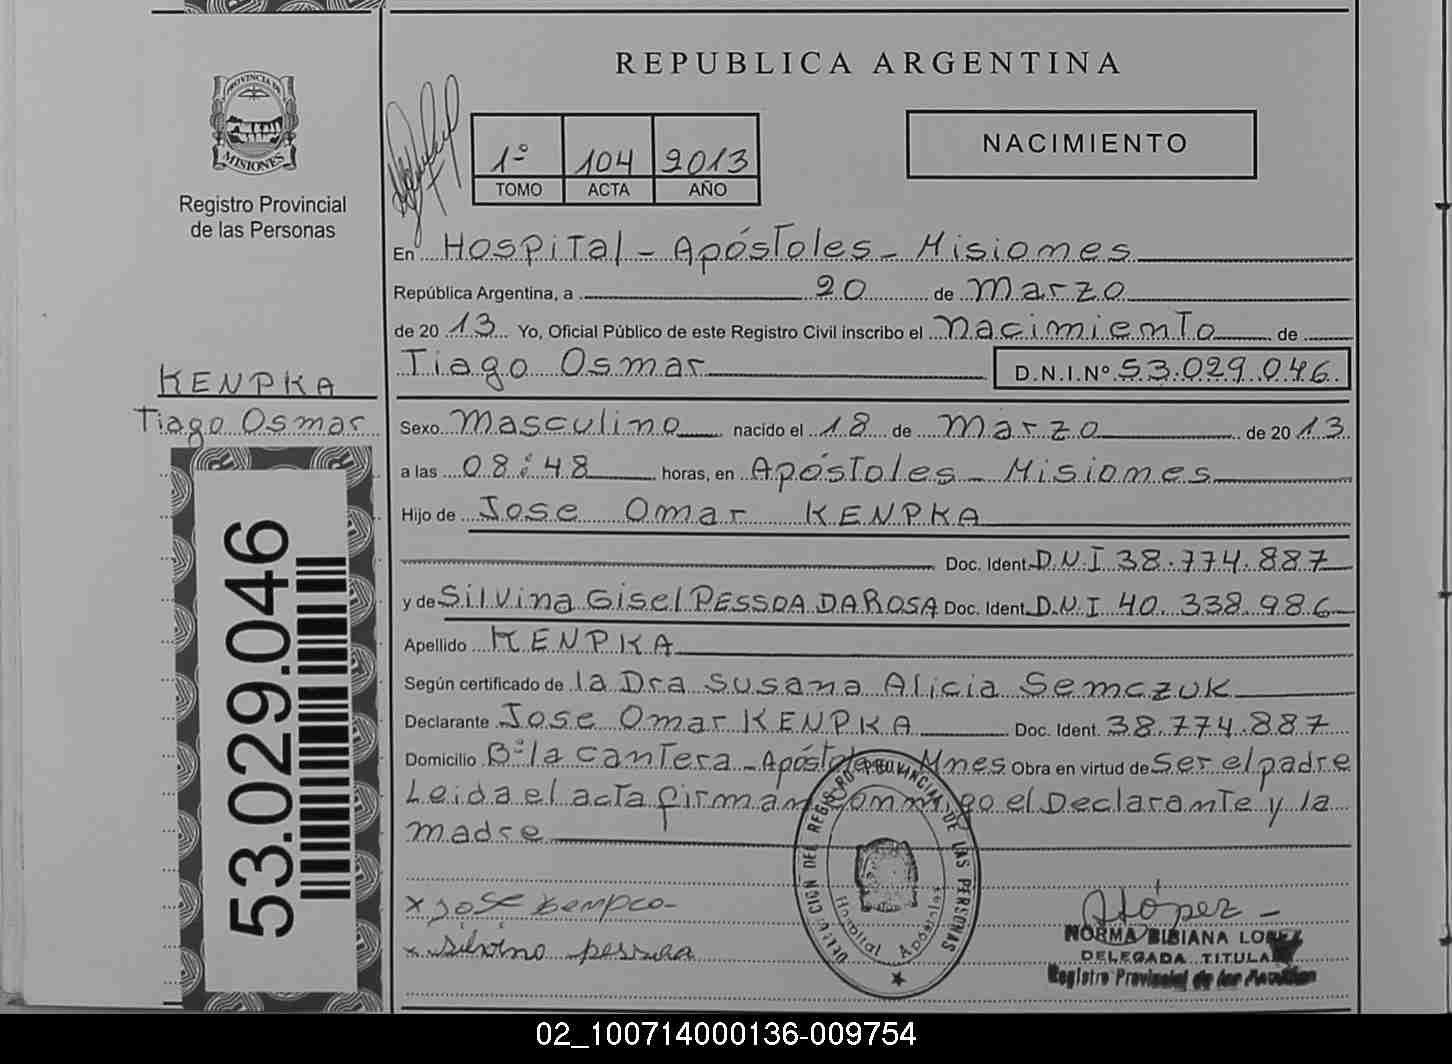 REPUBLICA ARGENTINA
PROVINCIA DE
MISIONES
Registro Provincial
de las Personas
1º 104 2013
TOMO ACTA AÑO
NACIMIENTO
En Hospital - Apóstoles - Misiones
República Argentina, a 20 de Marzo
de 2013 Yo, Oficial Público de este Registro Civil inscribo el nacimiento de
Tiago Osmar D.N.I.Nº 53.029.046
KENPKA
Tiago Osmar
Sexo Masculino nacido el 18 de Marzo de 2013
a las 08:48 horas, en Apóstoles - Misiones
Hijo de Jose Omar KENPKA
Doc. Ident. D.N.I 38.774.887
y de Silvina Gisel PESSOA DA ROSA Doc. Ident. D.N.I 40.338.986
Apellido KENPKA
Según certificado de la Dra Susana Alicia Semczuk
Declarante Jose Omar KENPKA Doc. Ident. 38.774.887
Domicilio Bº la Cantera - Apóstoles - Mnes Obra en virtud de Ser el padre
Leida el acta firman conmigo el Declarante y la
madre
53.029.046
x jose kempca
x silvino pessoa
DELEGACION DEL REGISTRO PROVINCIAL DE LAS PERSONAS
Hospital Apóstoles
NLópez
NORMA BIBIANA LOPEZ
DELEGADA TITULAR
Registro Provincial de las Personas
02_100714000136-009754